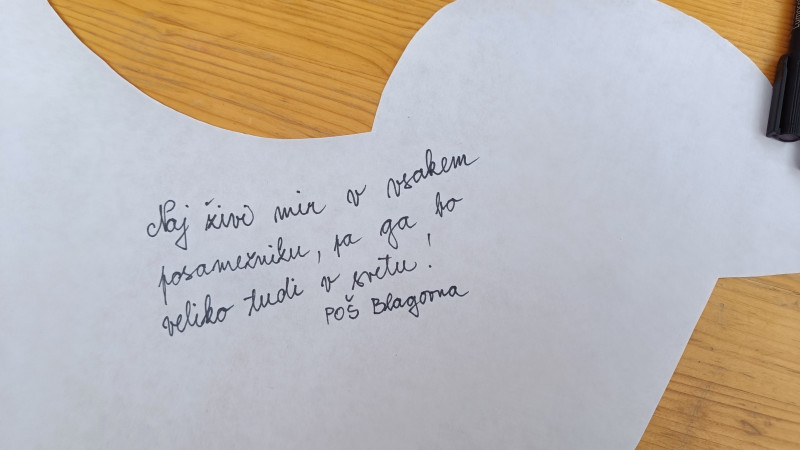 Naj živi mir v vsakem
posamezniku, pa ga bo
veliko tudi v svetu!
POŠ Blagovna